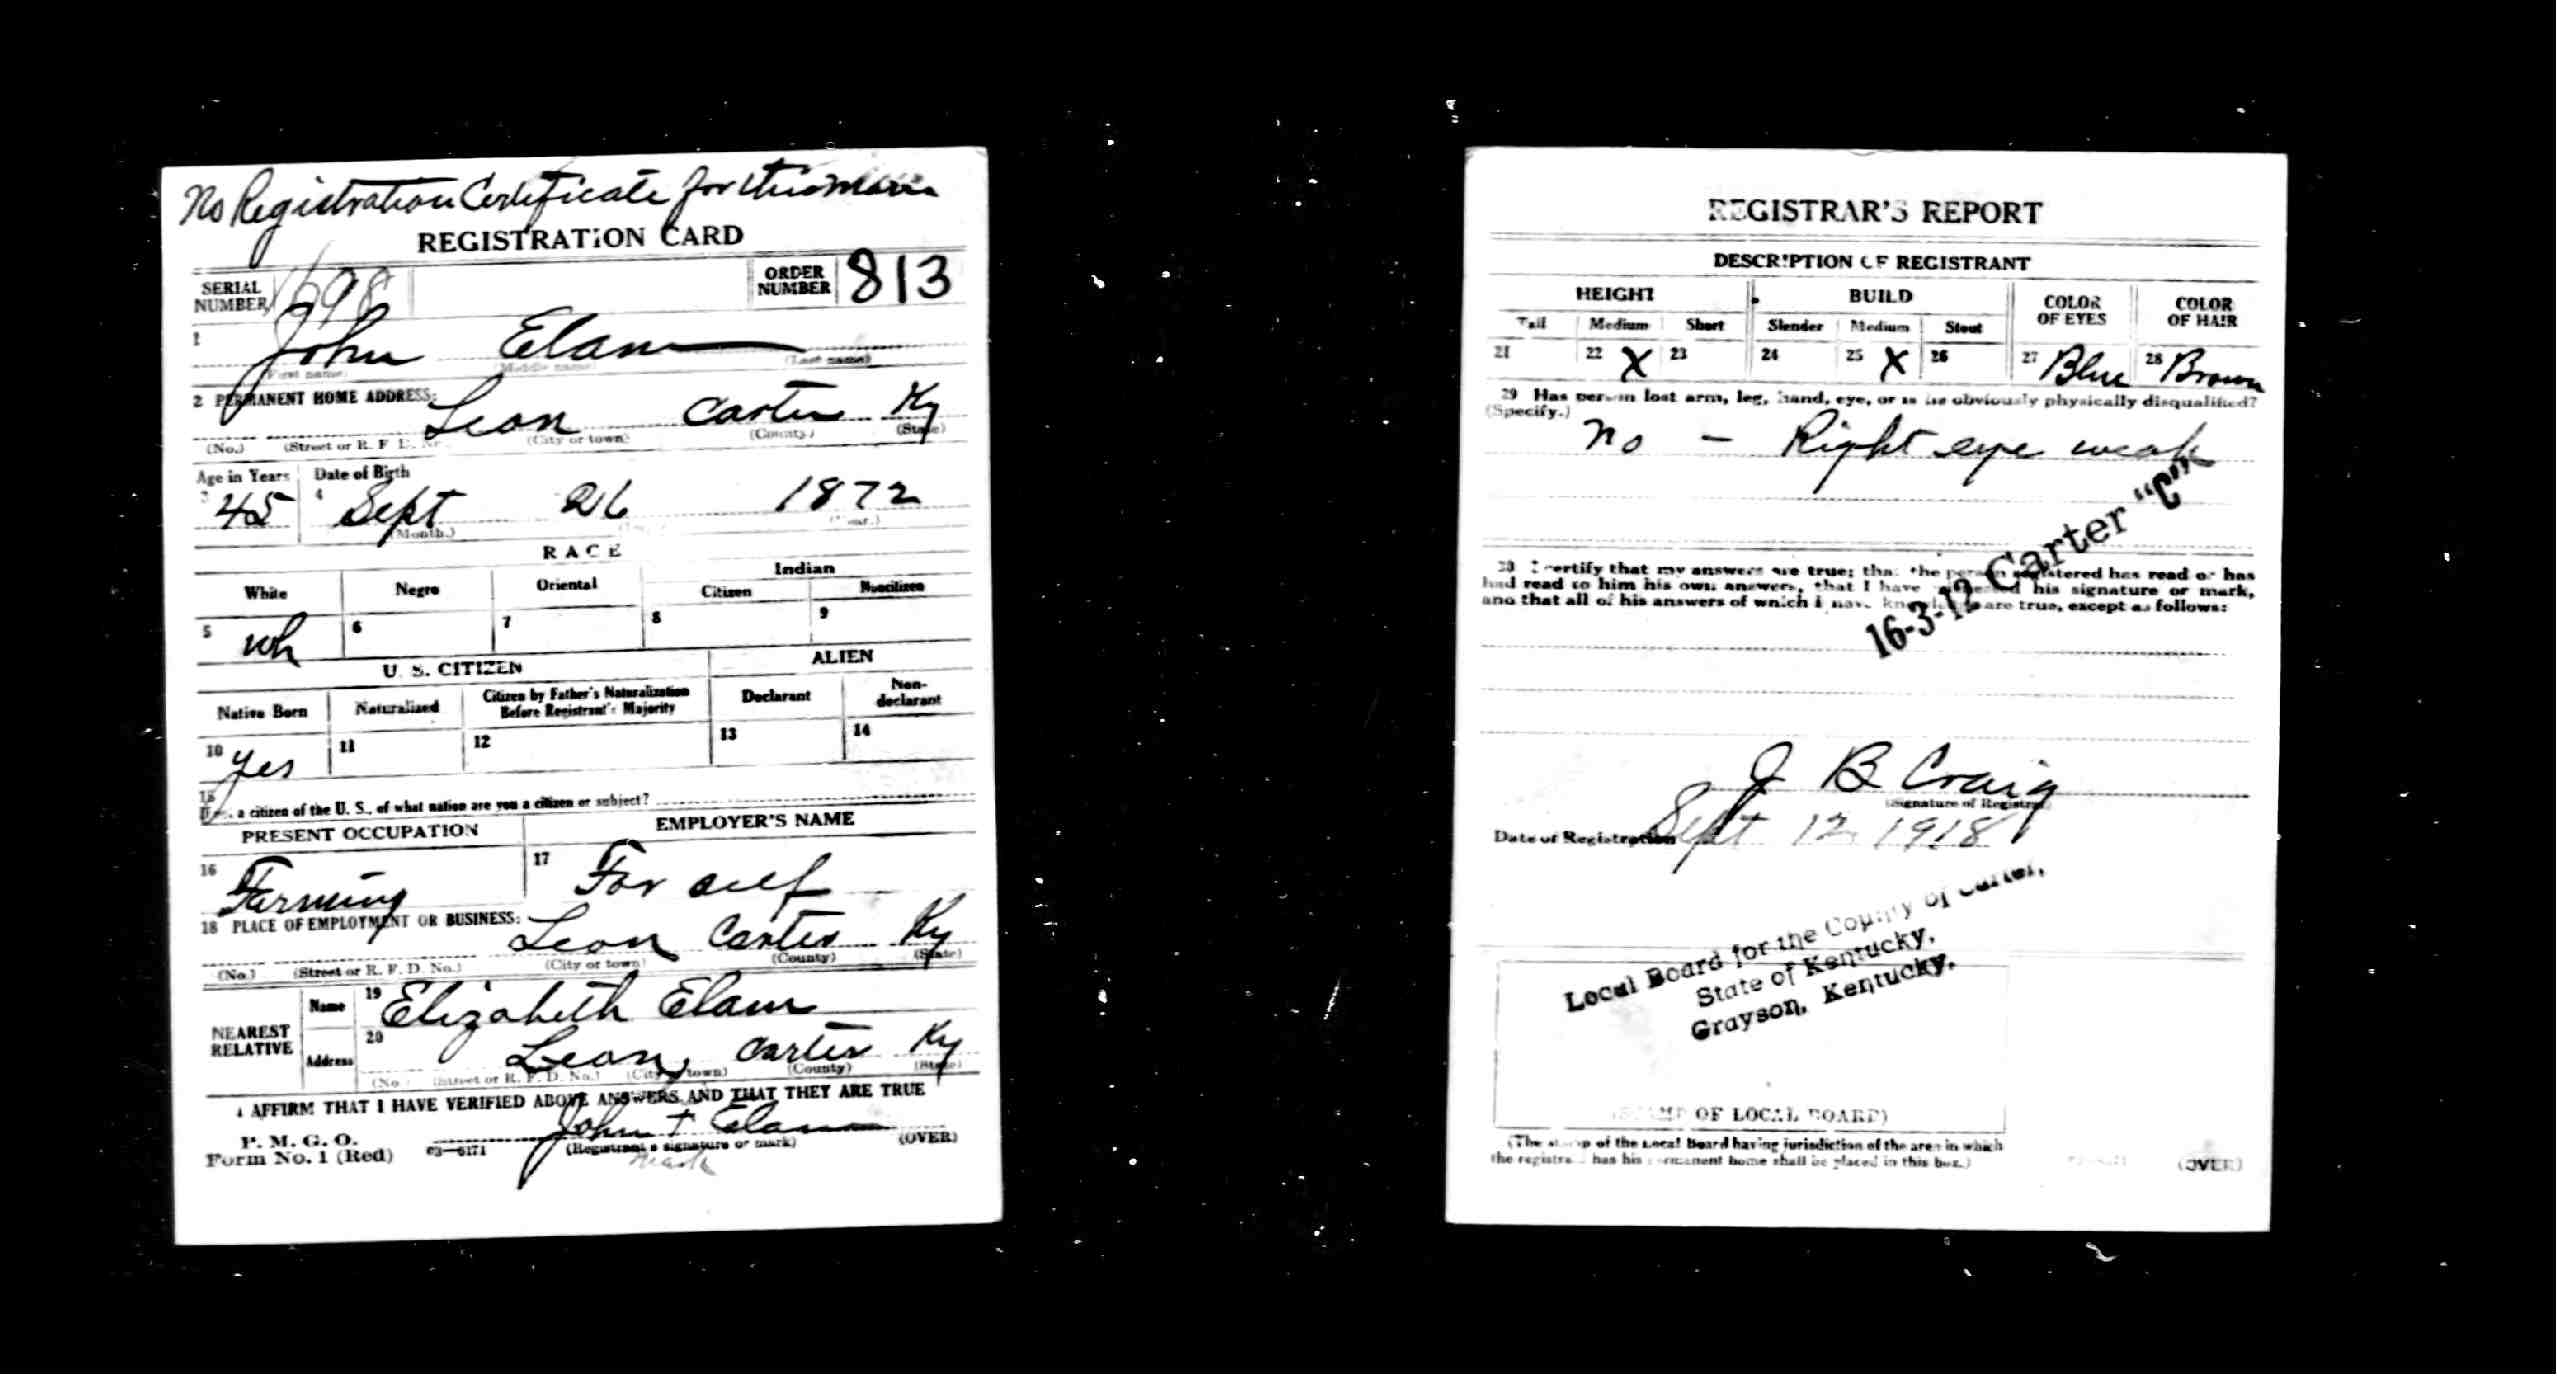 No Registration Certificate for this man
REGISTRATION CARD
SERIAL NUMBER 1698
ORDER NUMBER 813
1 John Elam
(First name) (Middle name) (Last name)
2 PERMANENT HOME ADDRESS:
Leon Carter Ky
(No.) (Street or R. F. D. No.) (City or town) (County) (State)
Age in Years Date of Birth
3 45 4 Sept 26 1872
(Month.) (Year.)
RACE
White Negro Oriental Indian
Citizen Noncitizen
5 wh 6 7 8 9
U. S. CITIZEN ALIEN
Native Born Naturalized Citizen by Father's Naturalization Before Registrant's Majority Declarant Non-declarant
10 yes 11 12 13 14
15 a citizen of the U. S., of what nation are you a citizen or subject?
PRESENT OCCUPATION EMPLOYER'S NAME
16 Farming 17 For self
18 PLACE OF EMPLOYMENT OR BUSINESS:
Leon Carter Ky
(No.) (Street or R. F. D. No.) (City or town) (County) (State)
NEAREST RELATIVE
Name 19 Elizabeth Elam
Address 20 Leon, Carter Ky
(No.) (Street or R. F. D. No.) (City or town) (County) (State)
I AFFIRM THAT I HAVE VERIFIED ABOVE ANSWERS AND THAT THEY ARE TRUE
John + Elam
P. M. G. O.
Form No. 1 (Red) 03—6171 (Registrant's signature or mark) (OVER)
mark
REGISTRAR'S REPORT
DESCRIPTION OF REGISTRANT
HEIGHT BUILD COLOR OF EYES COLOR OF HAIR
Tall Medium Short Slender Medium Stout
21 22 X 23 24 25 X 26 27 Blue 28 Brown
29 Has person lost arm, leg, hand, eye, or is he obviously physically disqualified?
(Specify.)
No - Right eye weak
30 I certify that my answers are true; that the person registered has read or has
had read to him his own answers, that I have witnessed his signature or mark,
and that all of his answers of which I have knowledge are true, except as follows:
16-3-12 Carter "C"
J B Craig
(Signature of Registrar)
Date of Registration Sept 12 1918
Local Board for the County of Carter,
State of Kentucky,
Grayson, Kentucky.
(STAMP OF LOCAL BOARD)
(The stamp of the Local Board having jurisdiction of the area in which
the registrant has his permanent home shall be placed in this box.)
(OVER)